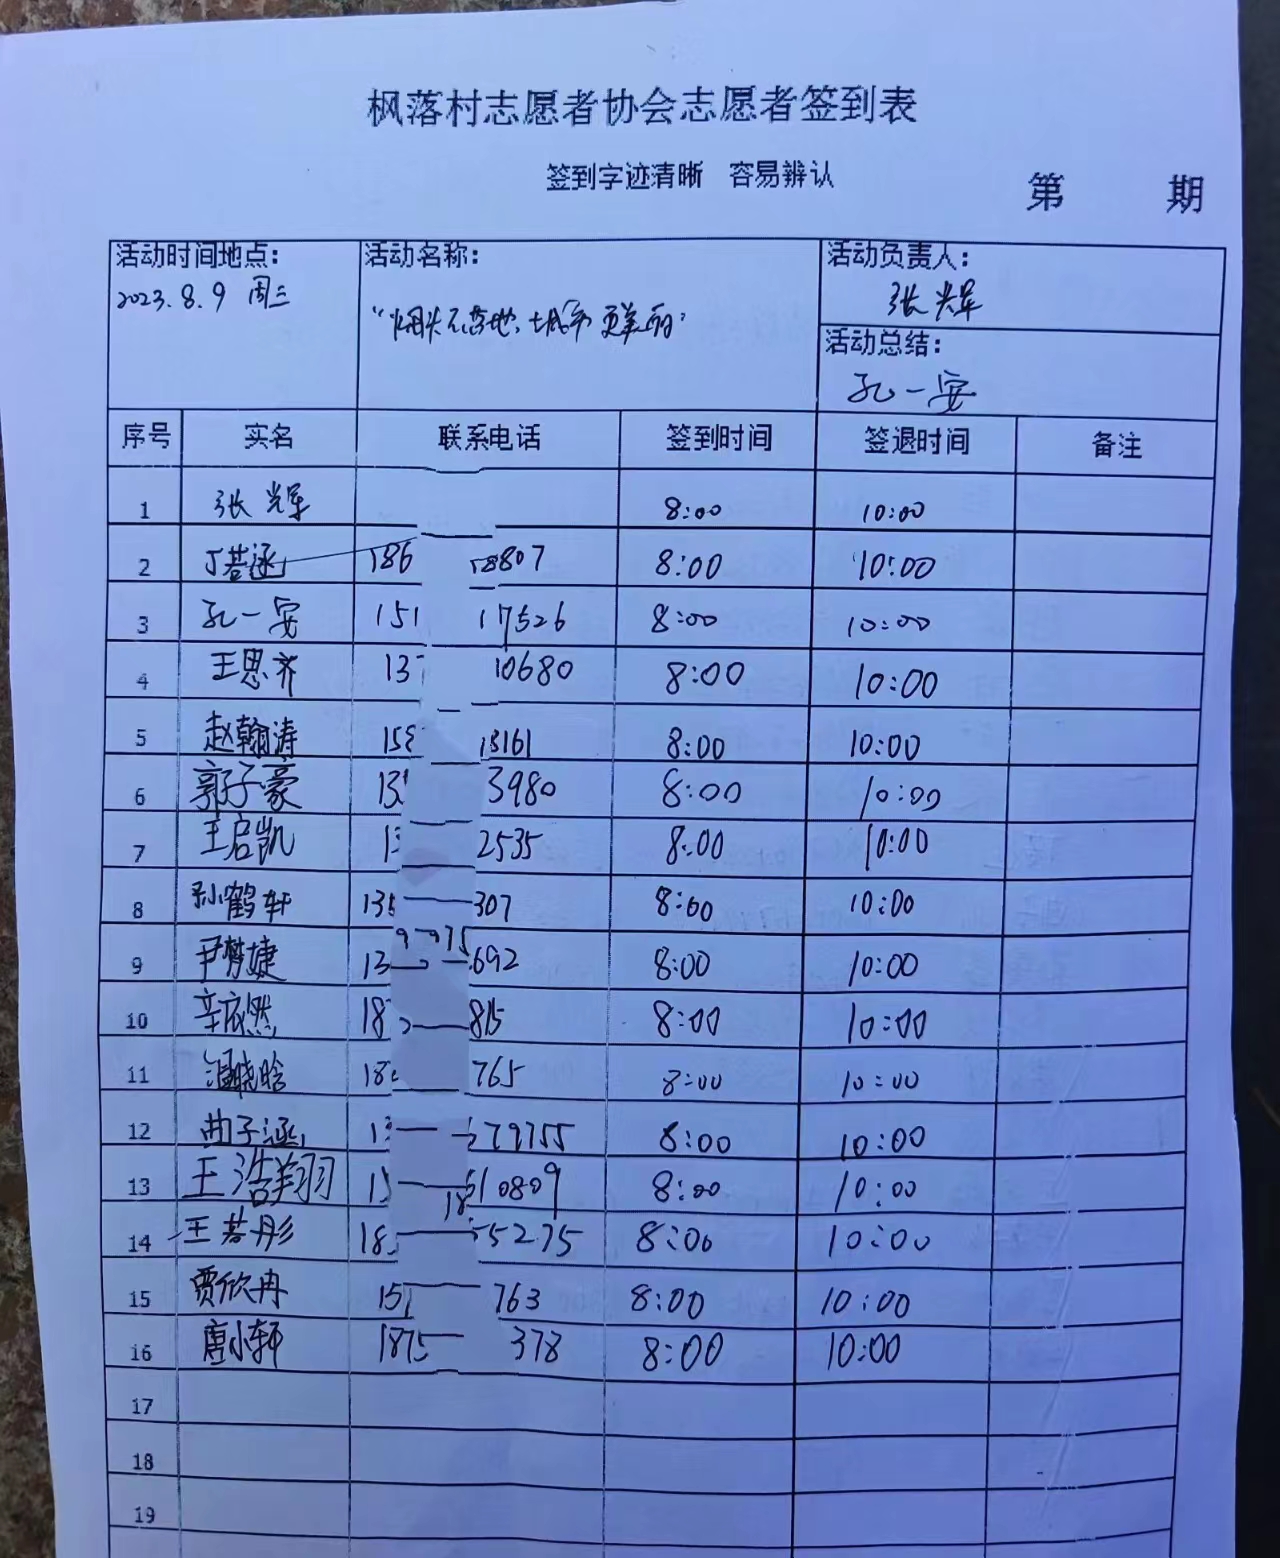 枫落村志愿者协会志愿者签到表
签到字迹清晰 容易辨认
第 期
活动时间地点: 活动名称: 活动负责人:
2023.8.9 周三 "烟头不落地、城市更美丽" 张光军
活动总结:
孔一安
序号 实名 联系电话 签到时间 签退时间 备注
1 张光军 8:00 10:00
2 丁若涵 186 18807 8:00 10:00
3 孔一安 151 17526 8:00 10:00
4 王思齐 137 10680 8:00 10:00
5 赵翰涛 158 13161 8:00 10:00
6 郭子豪 135 3980 8:00 10:00
7 王启凯 13 2535 8:00 10:00
8 孙鹤轩 135 307 8:00 10:00
9 尹梦婕 13 692 8:00 10:00
10 辛依然 187 815 8:00 10:00
11 温晓晗 18 765 8:00 10:00
12 曲子涵 13 79755 8:00 10:00
13 王浩翔 15 10809 8:00 10:00
14 王若彤 18 55275 8:00 10:00
15 贾欣冉 151 763 8:00 10:00
16 唐小轲 1875 378 8:00 10:00
17
18
19